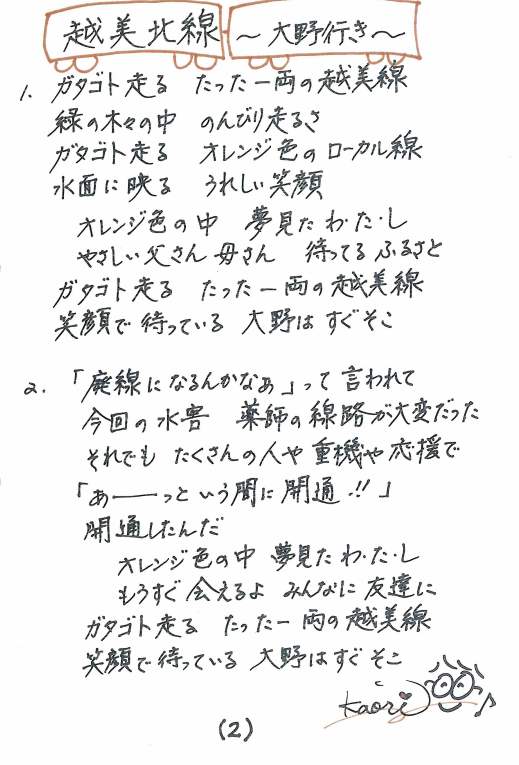 越美北線 ～大野行き～
1. ガタゴト走る たった一両の越美線
緑の木々の中 のんびり走るさ
ガタゴト走る オレンジ色のローカル線
水面に映る うれしい笑顔
オレンジ色の中 夢見たわ・た・し
やさしい父さん母さん 待ってるふるさと
ガタゴト走る たった一両の越美線
笑顔で待っている 大野はすぐそこ
2. 「廃線になるんかなぁ」って言われて
今回の水害 薬師の線路が大変だった
それでも たくさんの人や重機や応援で
「あ――っという間に開通!!」
開通したんだ
オレンジ色の中 夢見たわ・た・し
もうすぐ会えるよ みんなに友達に
ガタゴト走る たった一両の越美線
笑顔で待っている 大野はすぐそこ
Kaori
(2)